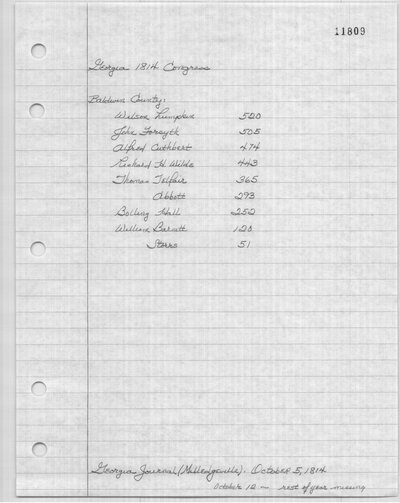 11809
Georgia 1814 Congress
Baldwin County:
Wilson Lumpkin 520
John Forsyth 505
Alfred Cuthbert 474
Richard H. Wilde 443
Thomas Telfair 365
Abbott 293
Bolling Hall 252
William Barnett 120
Storrs 51
Georgia Journal (Milledgeville). October 5, 1814
October 12 — rest of year missing